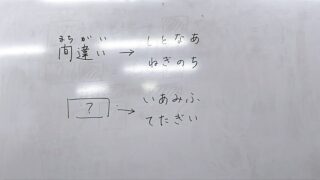 まちがい
間違い → しとなあ
ねきのち
? → いあみふ
てたぎい